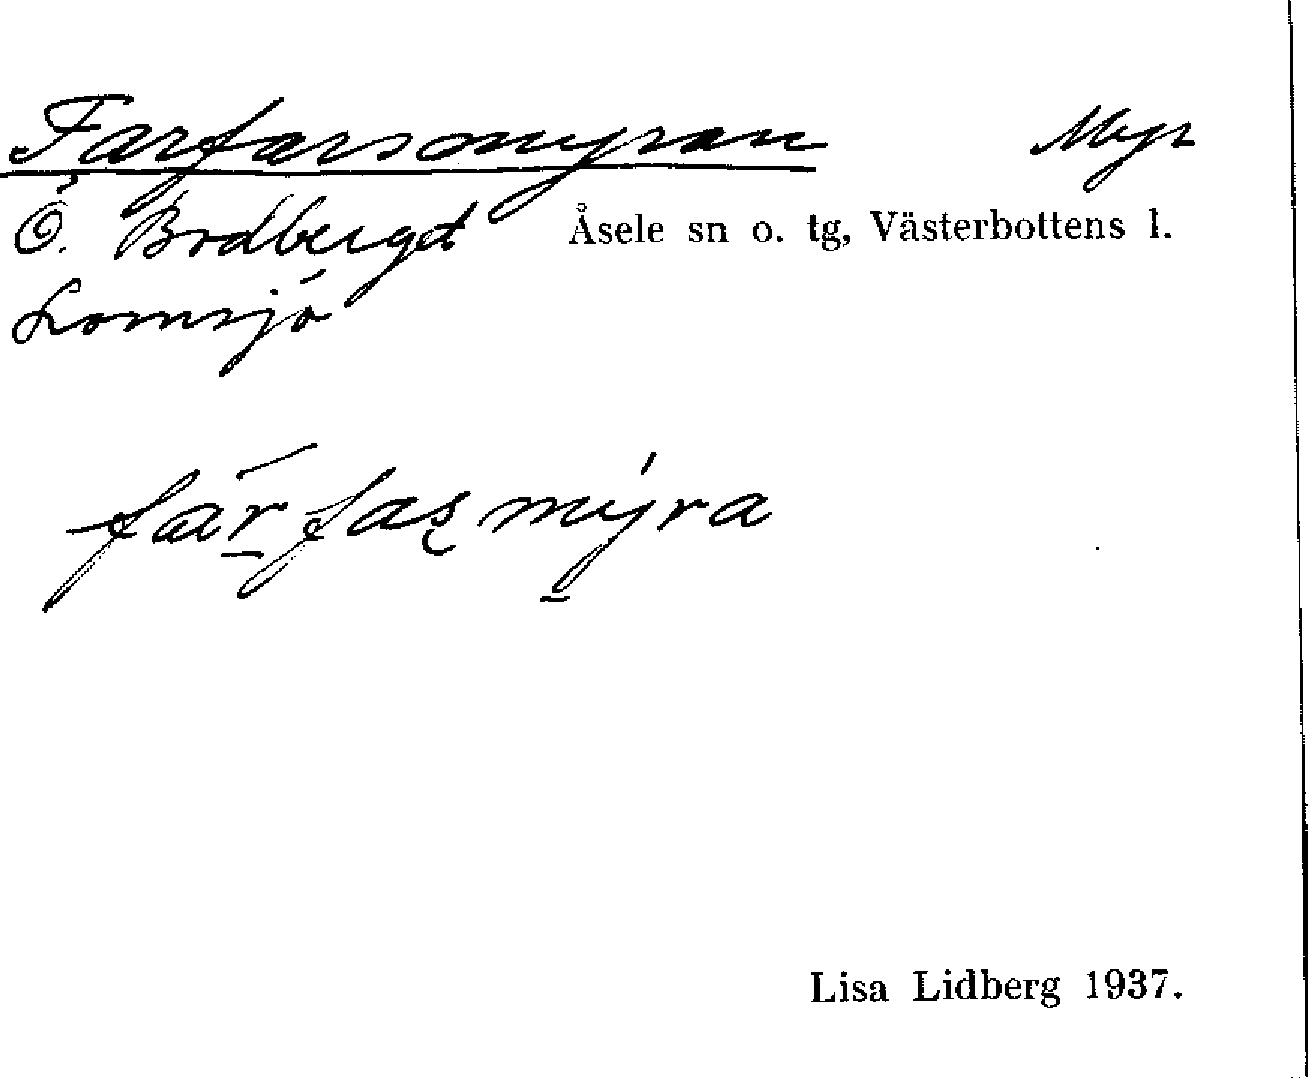 Farfarsmyran Myr
Ö. Bredberget Åsele sn o. tg, Västerbottens l.
Lomsjö
farfasmyra
Lisa Lidberg 1937.